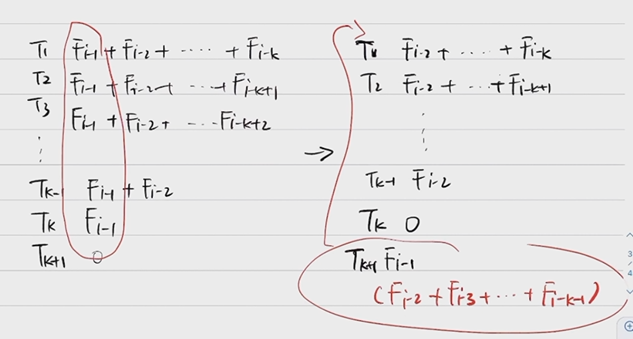 T1 Fi-1 + Fi-2 + ····· + Fi-k
T2 Fi-1 + Fi-2 + ··· + Fi-k+1
T3 Fi-1 + Fi-2 + ···Fi-k+2
⋮
Tk-1 Fi-1 + Fi-2
Tk Fi-1
Tk+1 0
→
T1 Fi-2 + ····· + Fi-k
T2 Fi-2 + ··· + Fi-k+1
⋮
Tk-1 Fi-2
Tk 0
Tk+1 Fi-1
(Fi-2 + Fi-3 + ··· + Fi-k-1)
3
/
4